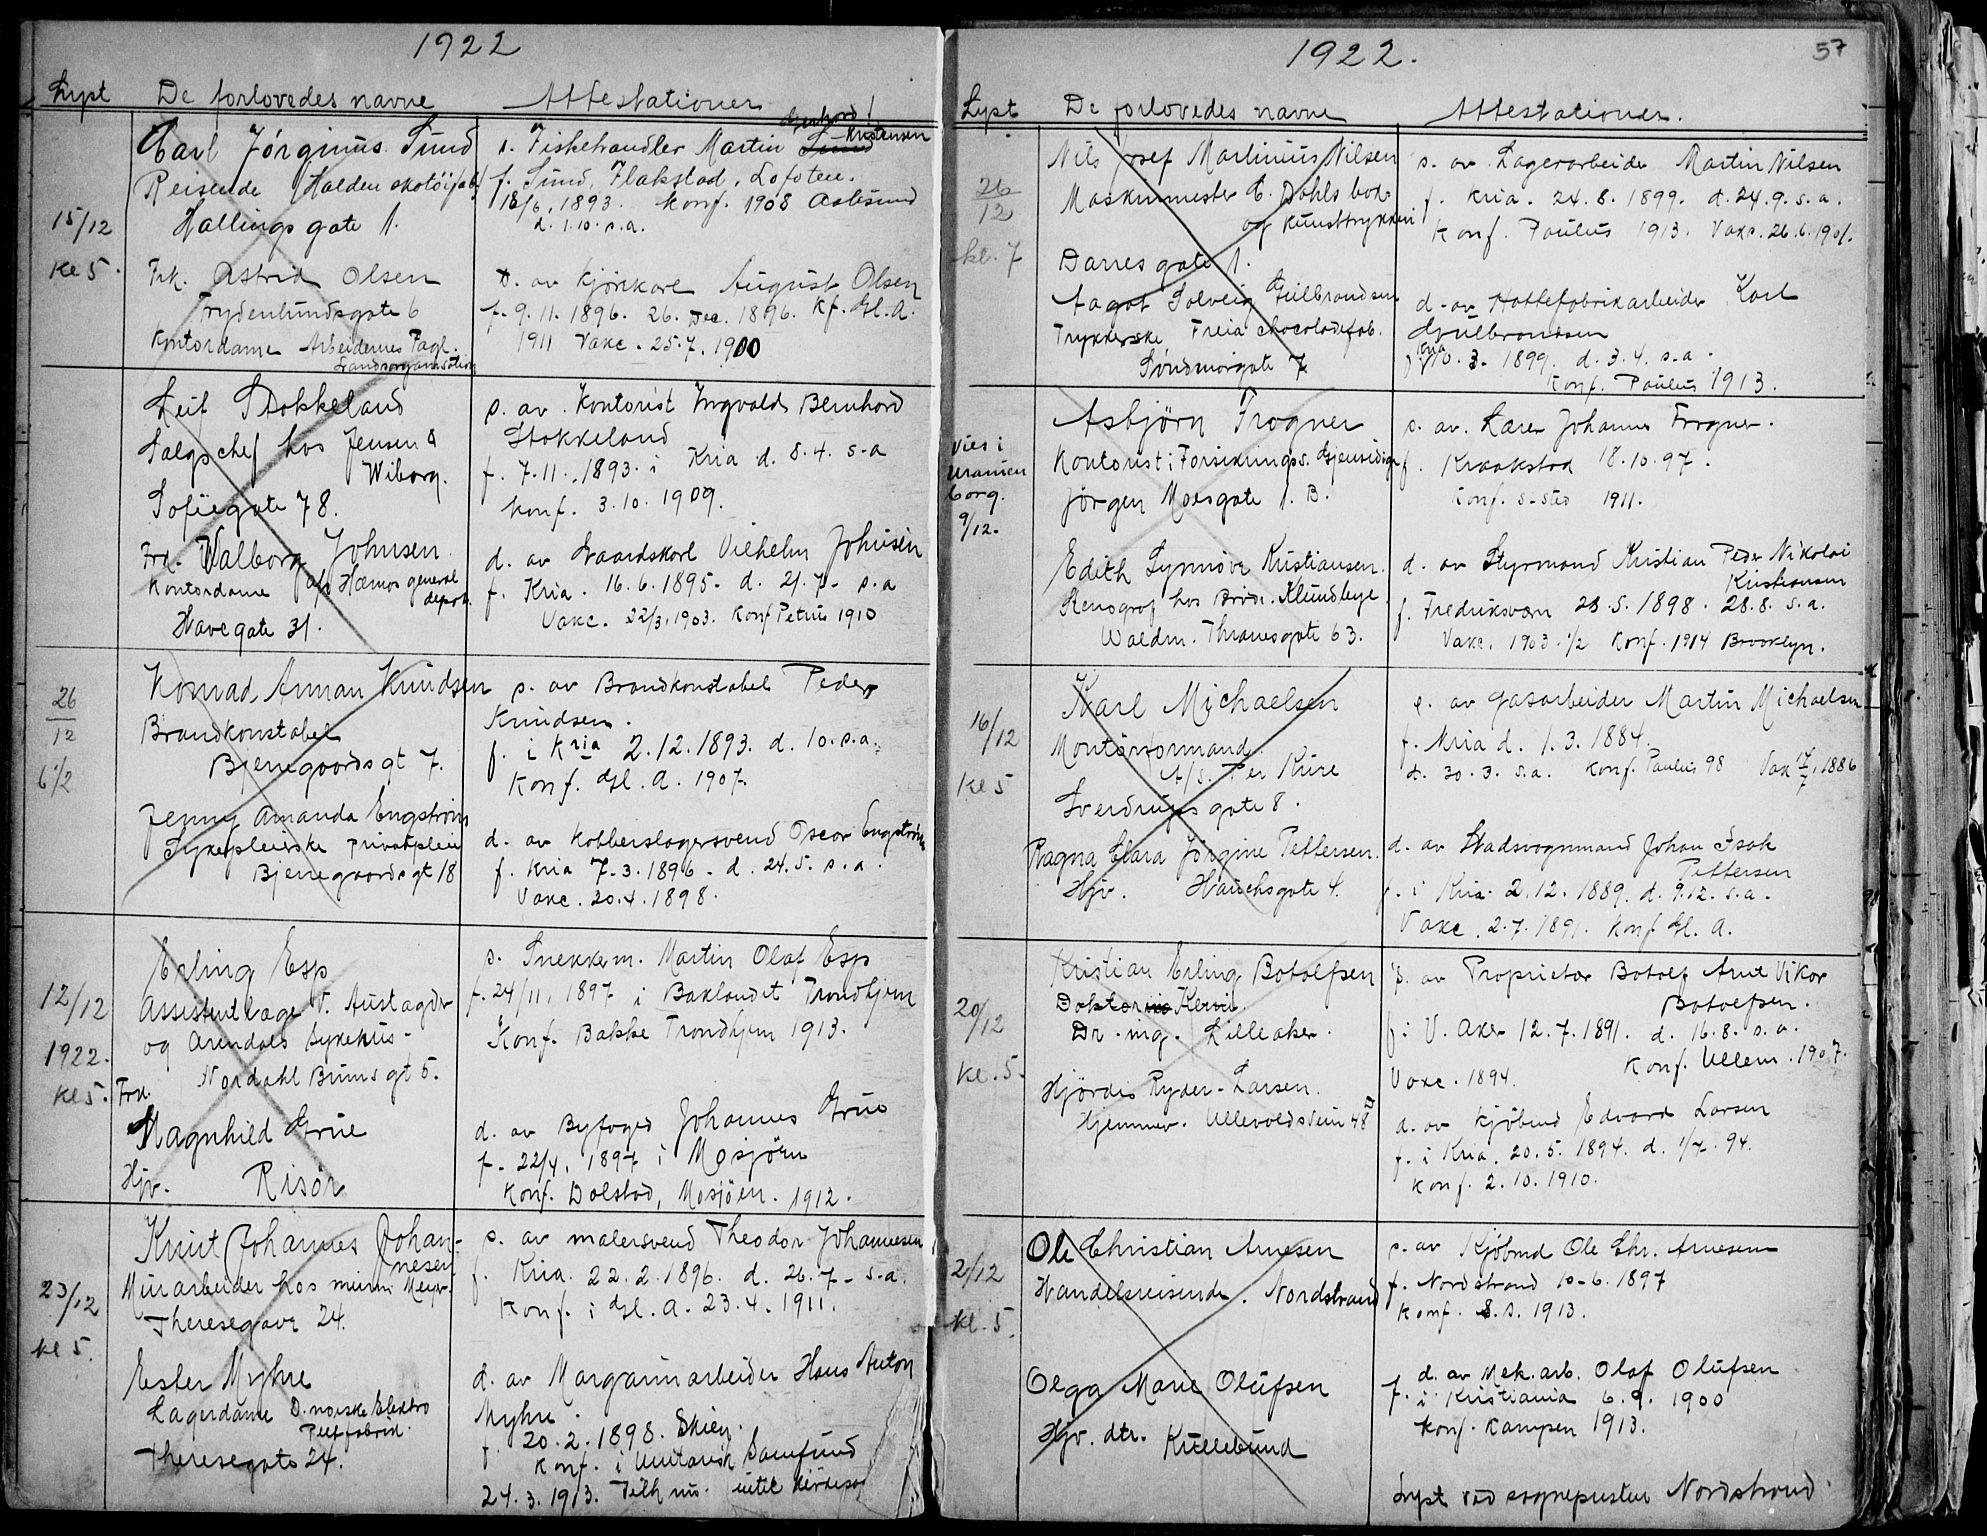 1922
Lyst De forlovedes navne Attestationer
Carl Jörginus Sund
Reisende Halden skotöifab.
Hallings gate 1.
15/12
Kl 5.
Frk. Astrid Olsen
Frydenlundsgate 6
Kontordame Arbeidernes Fagl.
Landsorganisation
s. Fiskehandler Martin Kristensen
f. Sund, Flakstad, Lofoten.
18/6, 1893. Konf. 1908 Aalesund
d. 1.10. s.a.
D. av Kjörekarl August Olsen
f. 9.11.1896. 26. Dec. 1896. Kf. Gl. A.
1911 Vakc. 25.7.1900
Leif Stokkeland
Salgschef hos Jensen &
Wiborg.
Sofiegate 78.
Frk. Valborg Johnsen.
Kontordame a/s Hæmos general
depot.
Havegate 31.
s. av. Kontorist Ingvald Bernhard
Stokkeland
f. 7.11.1893. i Kria d. 8.4. s.a
Konf. 3.10.1909.
d. av Gaardskarl Vilhelm Johnsen
f. Kria. 16.6.1895. d. 21.7. s.a
Vakc. 22/3.1903. Konf Petrus 1910
26/12
6 1/2
Konrad Annan Knudsen
Brandkonstabel
Bjerregaards gt 7.
Jenny Amanda Engström
Sykepleierske privatpleie
Bjerregaardsgt 18
s. av Brandkonstabel Peder
Knudsen.
f. i Kria 2.12.1893. d. 10. s.a.
Konf. Gl. A. 1907.
d. av Kobberslagersvend Oscar Engström
f. Kria 7.3.1896. d. 24.5. s.a.
Vakc. 20.4.1898.
12/12
1922.
kl 5.
Erling Esp
Assistentlæge v. Austagder
og Arendals sykehus.
Nordahl Bruns gt 5.
Frk.
Magnhild Grue
Hjv. Risör
s. Snekkerm. Martin Olaf Esp
f. 24/11, 1897 i Baklandet Trondhjem
Konf. Bakke Trondhjem 1913.
d. av Byfoged Johannes Grue
f. 22/4, 1897 i Mosjöen
Konf. Dolstad, Mosjöen. 1912.
23/12
kl 5.
Knut Johannes Johan-
nesen
Murarbeider hos murm. Meyer.
Theresegate 24.
Ester Myhre
Lagerdame D. norske Elektro
Theresegate 24.
s. av malersvend Theodor Johannesen
f. Kria. 22.2.1896. d. 26.7. s.a.
Konf. i Gl. A. 23.4.1911.
d. av Margarinarbeider Hans Anton
Myhre.
f. 20.2.1898. Skien.
Konf. i Unitarisk Samfund
24.3.1913.
1922. 57
Lyst De forlovedes navne Attestationer.
26/12
kl. 7
Nils Josef Martinius Nilsen
Maskinmester C. Dahls bok
og Kunsttrykkeri
Darres gate 1.
Aagot Solveig Gulbrandsen
Trykkerske Freia chocoladefab.
Söndmörgate 7.
s. av Lagerarbeider Martin Nilsen
f. Kria. 24.8.1899. d. 24.9. s.a.
Konf. Paulus 1913. Vakc. 26.6.1901.
d. av Hattefabrikarbeider Karl
Gulbrandsen
f. Kria 10.3.1899. d. 3.4. s.a.
Konf. Paulus 1913.
Vies i
Uranien
borg.
9/12.
Asbjörn Frogner
Kontorist i Forsikringss. Gjensidige
Jörgen Moesgate 1. B.
Edith Synnöve Kristiansen.
Stenograf hos Brödr. Klundbye
Waldm. Thranesgate 63.
s. av. Lærer Johannes Frogner.
f. Kraakstad 18.10.97.
Konf. s-sted 1911.
d. av Styrmand Kristian Peder Nikolai
Kristiansen
f. Fredriksværn 28.5.1898. 28.8. s.a.
Vakc. 1903. 1/2 Konf. 1914 Brooklyn.
16/12
kl 5
Karl Michaelsen
Montörformand.
A/s. Per Kure
Sverdrups gate 8.
Ragna Clara Jörgine Pettersen.
Hjv. Hauchsgate 4.
s. av Gasarbeider Martin Michaelsen
f. Kria d. 1.3.1884.
d. 30.3. s.a. Konf. Paulus 98 Vak 1886
d. av Stadsvognmand Johan Isak
Pettersen
f. i Kria. 2.12.1889. d. 9.12. s.a.
Vakc. 2.7.1891. Konf Gl. A.
20/12
kl. 5.
Kristian Erling Botolfsen
Dr. ing. Lilleaker.
Hjördis Ryder-Larsen.
Hjemmev. Ullevoldsveien 48 II
s. av Proprietær Botolf Arne Vikor
Botolfsen.
f. i V. Aker 12.7.1891. d. 16.8. s.a.
Vakc. 1894. Konf. Ullern. 1907.
d. av Kjöbmd Edvard Larsen
f. i Kria. 20.5.1894. d. 1/7. 94.
Konf. 2.10.1910.
2/12
kl. 5.
Ole Christian Arnesen
Handelsreisende. Nordstrand
Olga Marie Olufsen
Hjv. dtr. Kullebund
s. av Kjöbmd Ole Chr. Arnesen
f. Nordstrand 10-6.1897
Konf. s.s. 1913.
d. av Mek. arb. Olaf Olufsen
f. i Kristiania 6.9.1900
Konf. Kampen 1913.
Lyst ved sognepresten Nordstrand